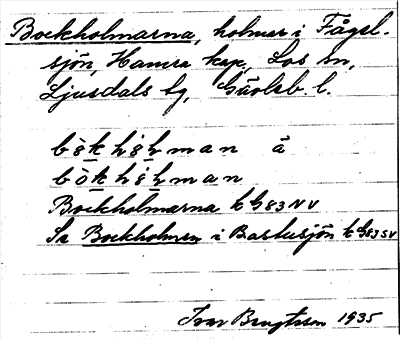 Bockholmarna, holmar i Fågel-
sjön, Hamra kap, Los sn,
Ljusdals tg, Gävleb. l.
man a n å
man a n
Bockholmarna k h 83 NV
Se Bockholmen i Bastusjön k h 83 SV
Ivar Bengtsson 1935